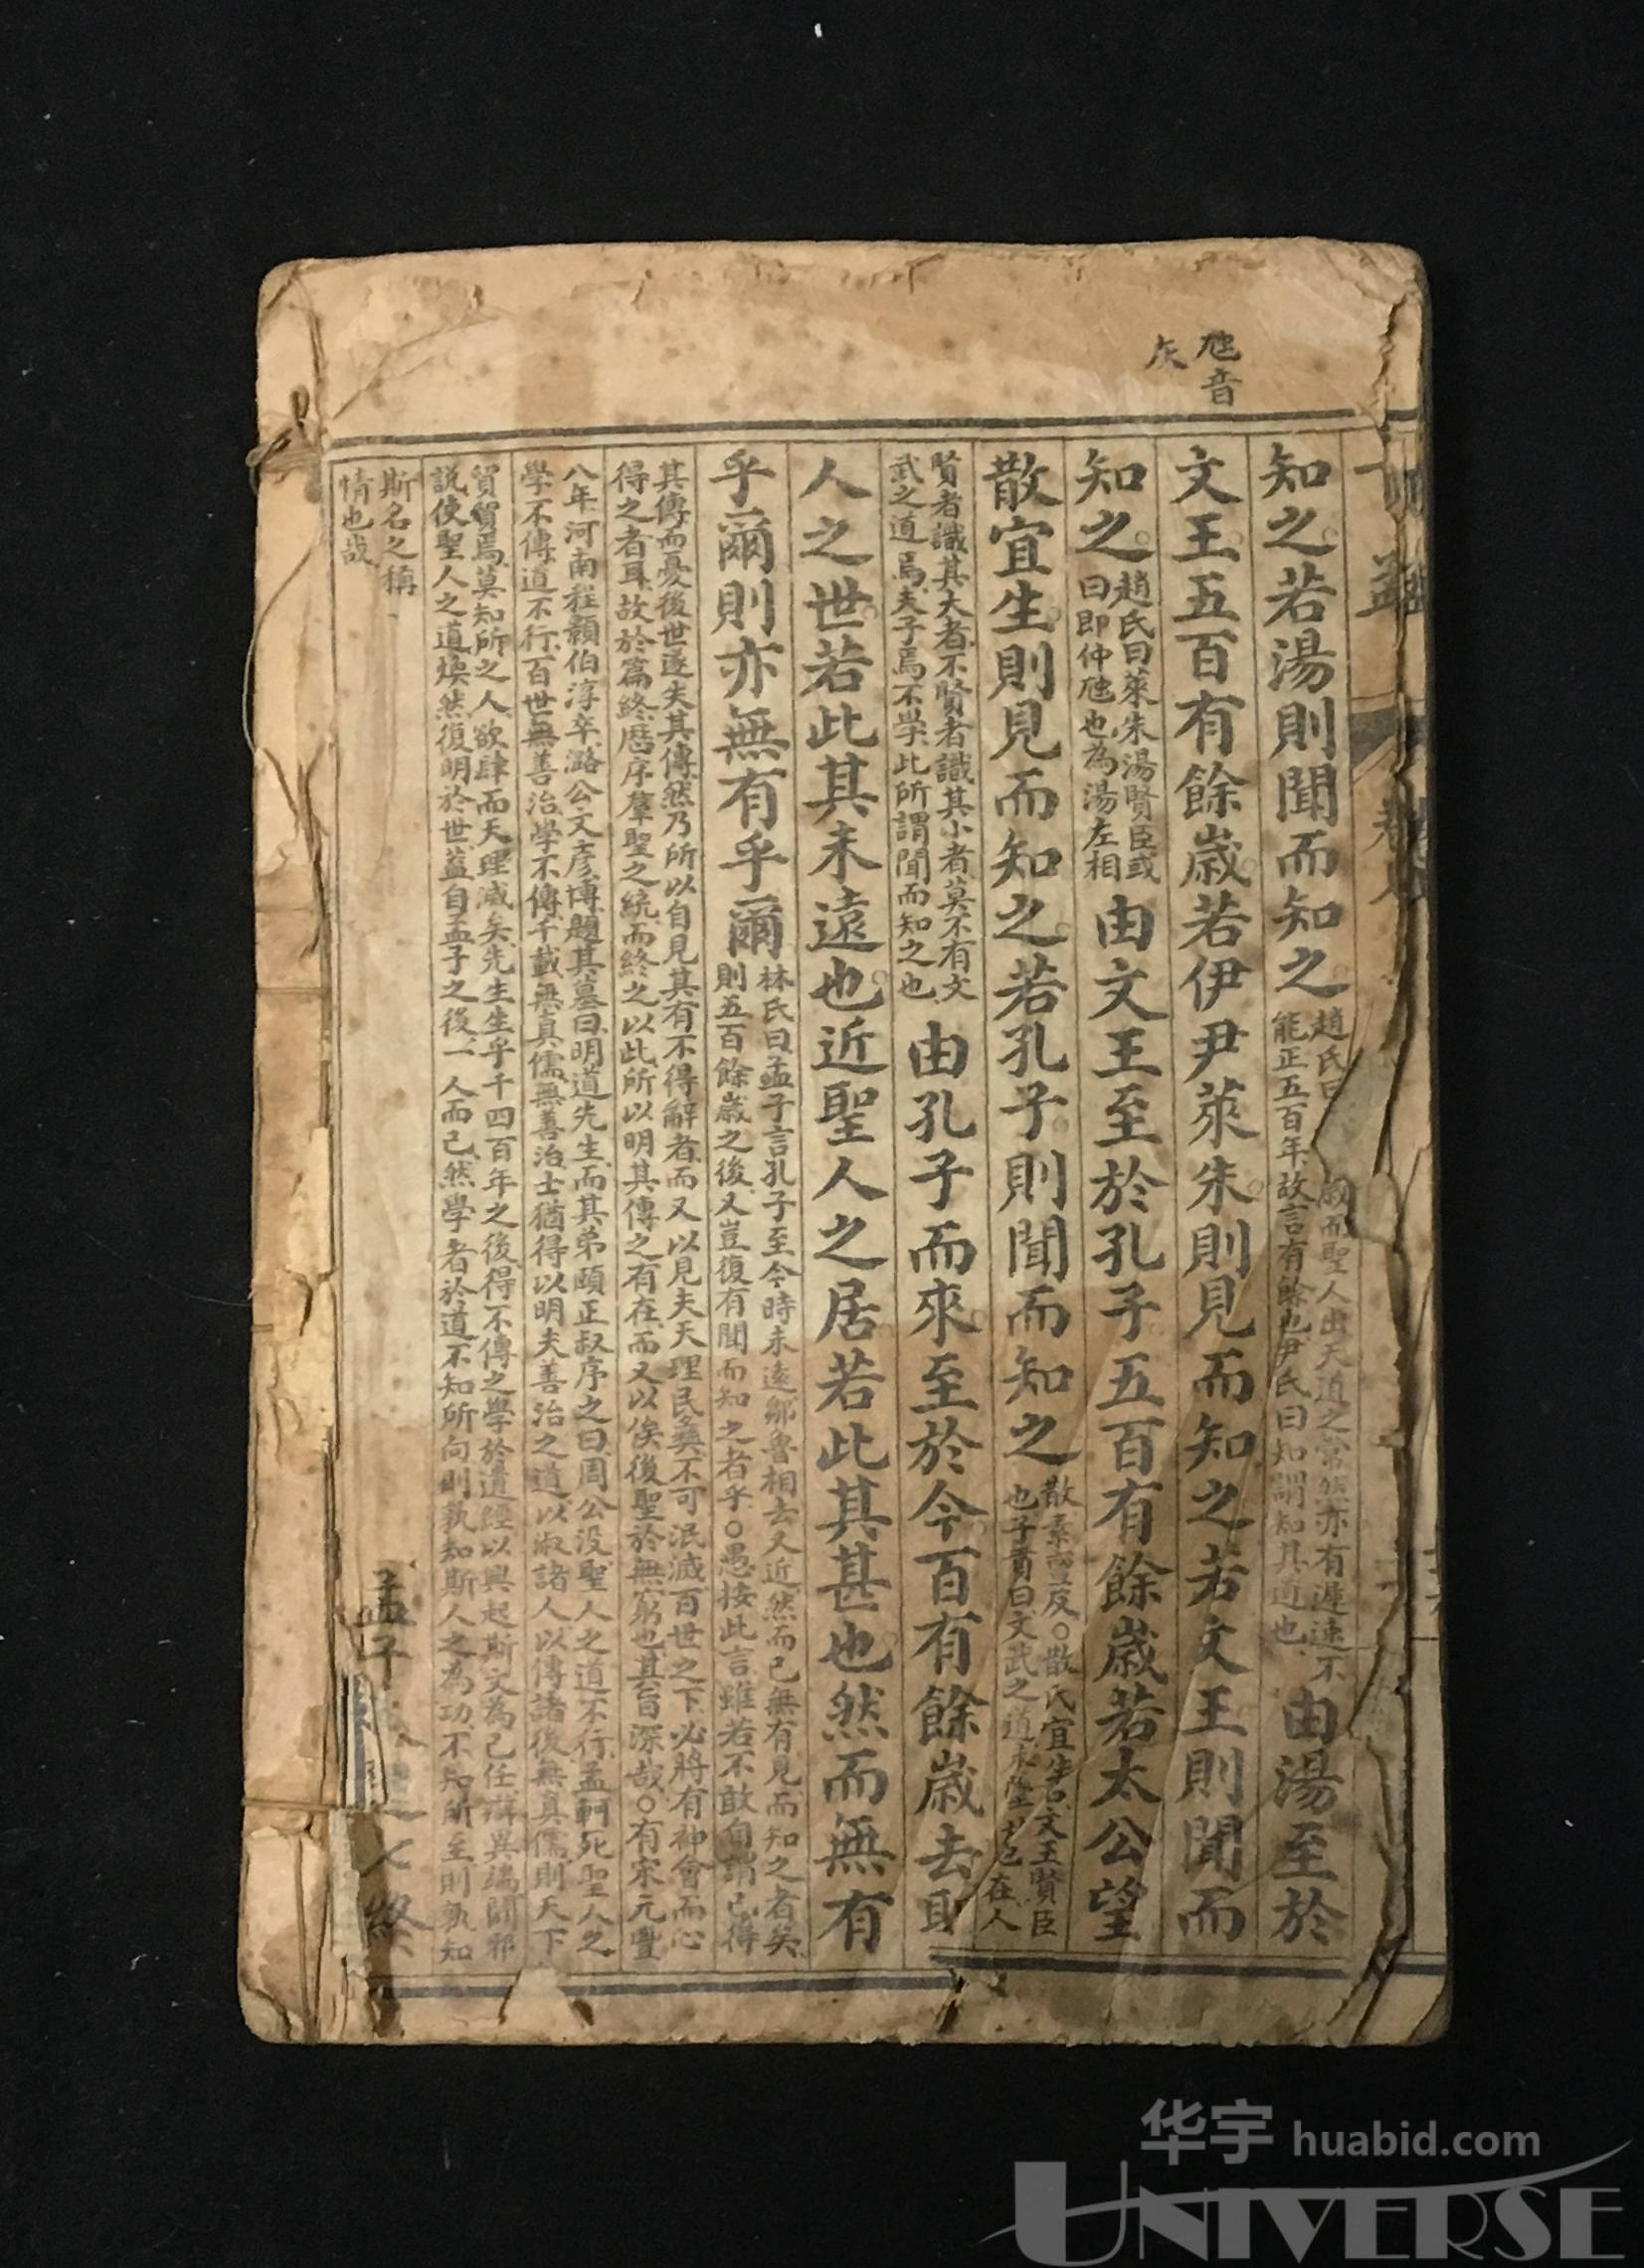 虺音
灰
孟
知之若湯則聞而知之
趙氏曰
歲而聖人出天道之常然亦有遲速不
能正五百年故言有餘也尹氏曰知謂知其道也
由湯至於
文王五百有餘歲若伊尹萊朱則見而知之若文王則聞而
知之
趙氏曰萊朱湯賢臣或
曰即仲虺也為湯左相
由文王至於孔子五百有餘歲若太公望
散宜生則見而知之若孔子則聞而知之
散素亶反○散氏宜生名文王賢臣
也子貢曰文武之道未墜
在人
賢者識其大者不賢者識其小者莫不有文
武之道焉夫子焉不学此所謂聞而知之也
由孔子而來至於今百有餘歲去聖
人之世若此其未遠也近聖人之居若此其甚也然而無有
乎爾則亦無有乎爾
林氏曰孟子言孔子至今時未遠鄒魯相去又近然而已無有見而知之者矣
則五百餘歲之後又豈復有聞而知之者乎○愚按此言雖若不敢自謂已得
其傳而憂後世遂失其傳然乃所以自見其有不得辭者而又以見夫天理民彝不可泯滅百世之下必將有神會而心
得之者耳故於篇終歷序羣聖之統而終之以此所以明其傳之有在而又以俟後聖於無窮也其旨深哉○有宋元豐
八年河南程顥伯淳卒潞公文彥博題其墓曰明道先生而其弟頤正叔序之曰周公没聖人之道不行孟軻死聖人之
學不傳道不行百世無善治學不傳千載無真儒無善治士猶得以明夫善治之道以淑諸人以傳諸後無真儒則天下
貿貿焉莫知所之人欲肆而天理滅矣先生生乎千四百年之後得不傳之學於遺經以興起斯文為己任辨異端闢邪
説使聖人之道煥然復明於世蓋自孟子之後一人而已然學者於道不知所向則孰知斯人之為功不知所至則孰知
斯名之稱
情也哉
孟子
之七終
华宇 huabid.com
UNIVERSE